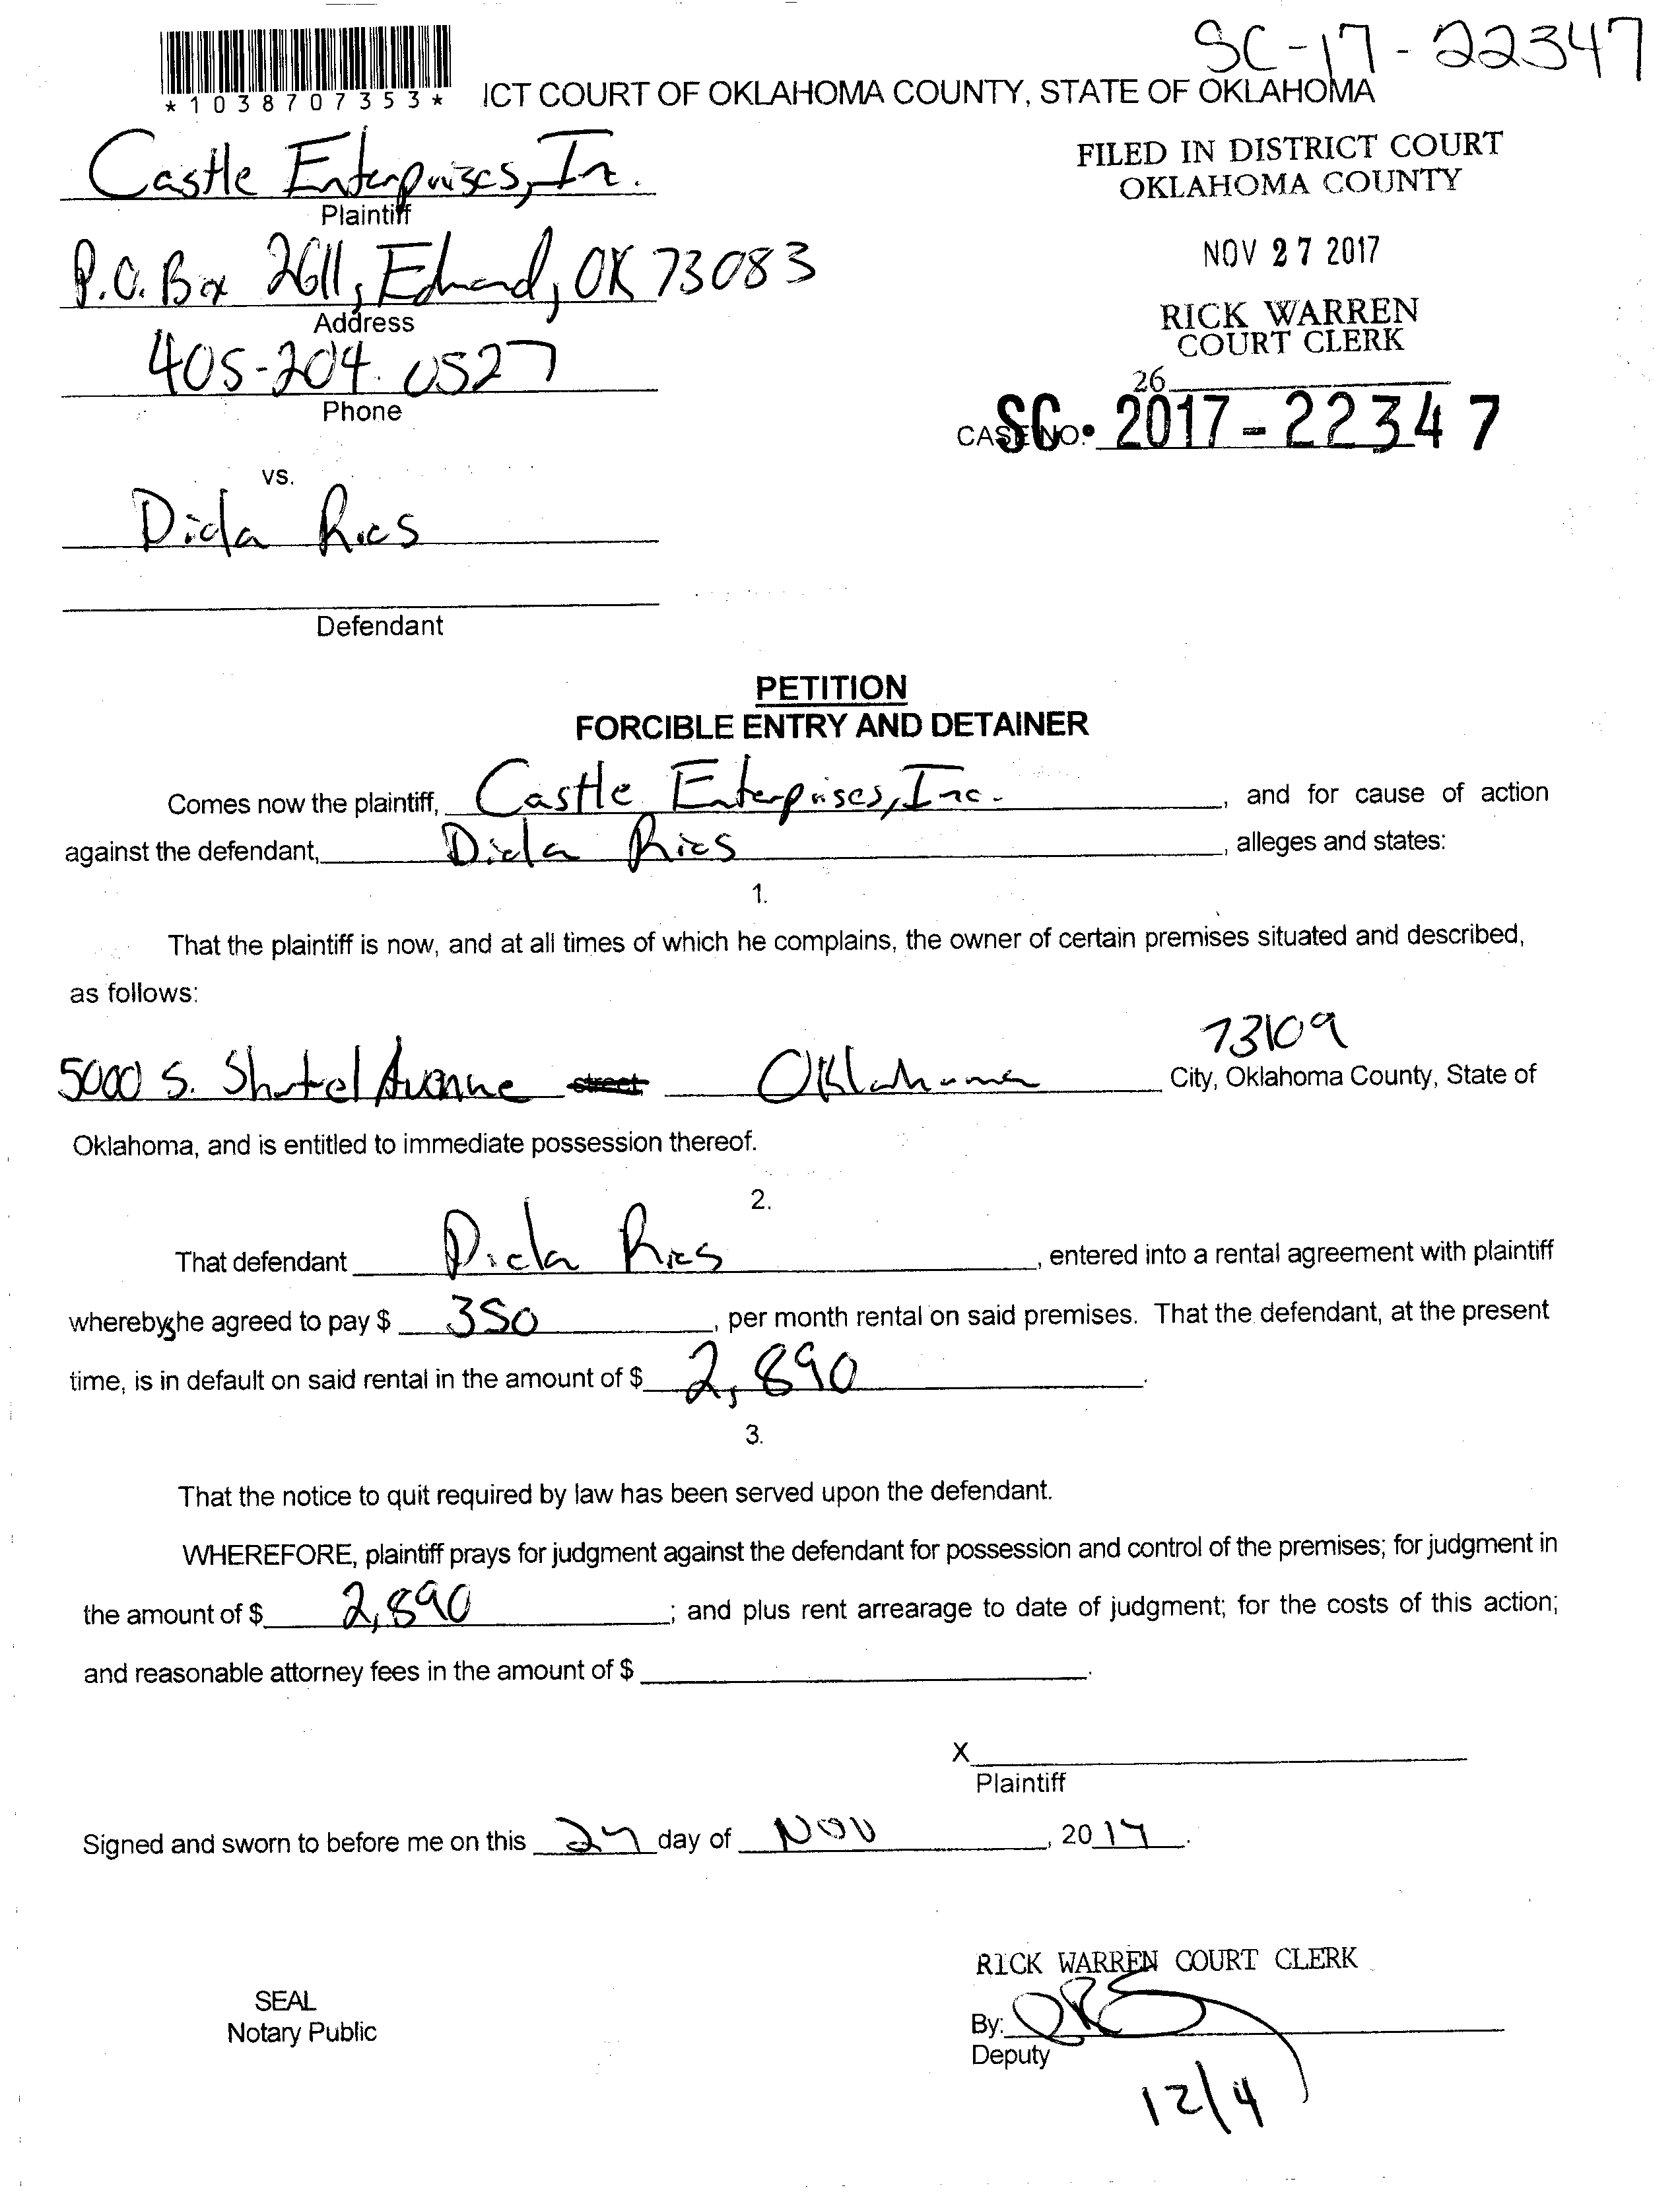 SC-17-22347
*1038707353*
ICT COURT OF OKLAHOMA COUNTY, STATE OF OKLAHOMA
Castle Enterprises, Inc.
Plaintiff
FILED IN DISTRICT COURT
OKLAHOMA COUNTY
P.O. Box 2611, Edmond, OK 73083
Address
NOV 27 2017
405-204-0527
Phone
RICK WARREN
COURT CLERK
26
CASE NO. SC • 2017-22347
vs.
Dicla Rios
Defendant
PETITION
FORCIBLE ENTRY AND DETAINER
Comes now the plaintiff, Castle Enterprises, Inc. , and for cause of action
against the defendant, Dicla Rios , alleges and states:
1.
That the plaintiff is now, and at all times of which he complains, the owner of certain premises situated and described,
as follows:
73109
5000 S. Shartel Avenue street Oklahoma City, Oklahoma County, State of
Oklahoma, and is entitled to immediate possession thereof.
2.
That defendant Dicla Rios , entered into a rental agreement with plaintiff
whereby she agreed to pay $ 350 , per month rental on said premises. That the defendant, at the present
time, is in default on said rental in the amount of $ 2,890 .
3.
That the notice to quit required by law has been served upon the defendant.
WHEREFORE, plaintiff prays for judgment against the defendant for possession and control of the premises; for judgment in
the amount of $ 2,890 ; and plus rent arrearage to date of judgment; for the costs of this action;
and reasonable attorney fees in the amount of $ .
X
Plaintiff
Signed and sworn to before me on this 27 day of NOV , 2017.
RICK WARREN COURT CLERK
SEAL
Notary Public
By:
Deputy
12/4